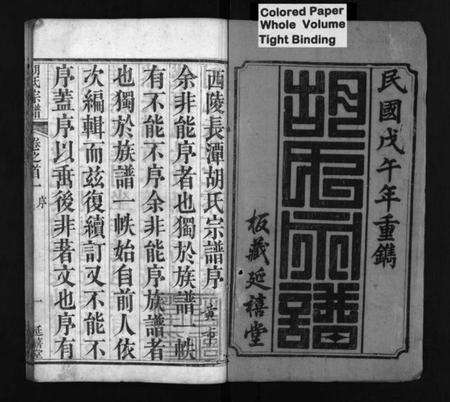 Colored Paper
Whole Volume
Tight Binding
民國戊午年重鐫
胡氏宗譜
板藏延禧堂
西陵長潭胡氏宗譜序
余非能序者也獨於族譜一帙
有不能不序余非能序族譜者
也獨於族譜一帙始自前人依
次編輯而茲復續訂又不能不
序蓋序以垂後非著文也序有
胡氏宗譜
卷之首
序
一
延禧堂